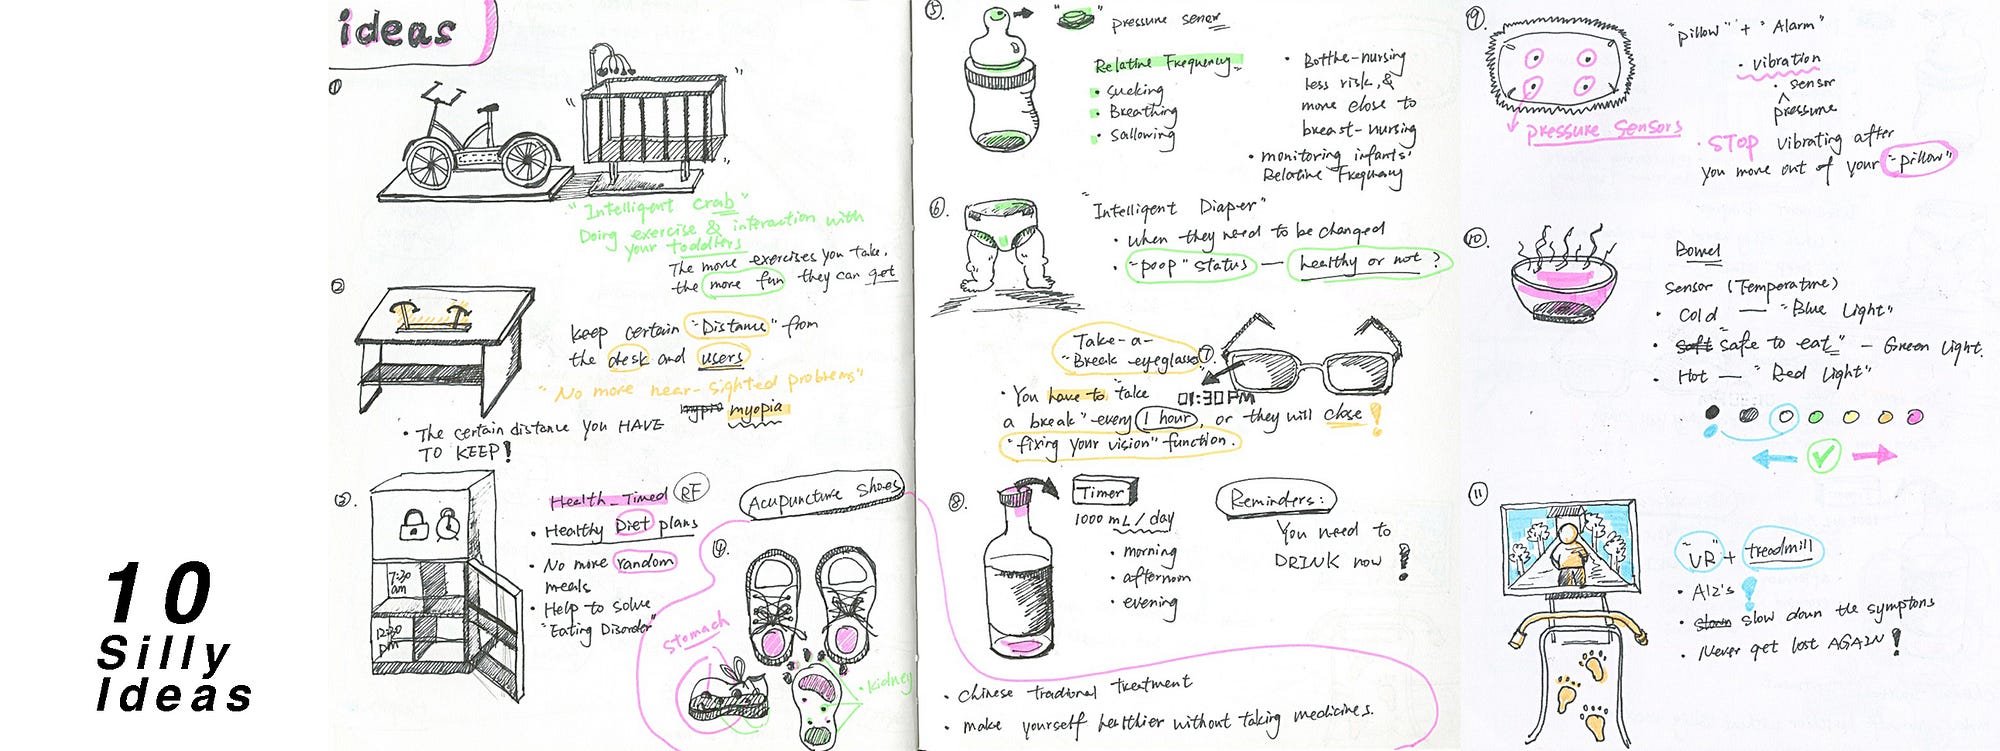 10
Silly
Ideas
ideas
①
"Intelligent crab"
Doing exercise & interaction with
your toddlers
The more exercises you take,
the more fun they can get
②
keep certain "Distance" from
the desk and users
"No more near-sighted problems"
mypro myopia
• The certain distance you HAVE
TO KEEP!
③
7:30
am
12:30
pm
Health-Timed RF
• Healthy Diet plans
• No more random
meals
• Help to solve
"Eating Disorder"
Acupuncture shoes
④
stomach
• kidney
• Chinese traditional treatment
• make yourself healthier without taking medicines.
⑤
pressure sensor
Relative Frequency
• sucking
• Breathing
• Sallowing
• Botthe-nursing
less risk, &
more close to
breast-nursing
• monitoring infants'
Relative Frequency
⑥
"Intelligent Diaper"
• When they need to be changed
• "poop" status — healthy or not?
Take-a-
"Break eyeglasses
⑦
01:30 PM
• You have to "take
a break" every 1 hour, or they will close!
"fixing your vision" function.
⑧
Timer
1000 mL/day
• morning
• afternoon
• evening
Reminders:
You need to
DRINK now!
⑨
"pillow" + "Alarm"
• vibration
• sensor
pressure
pressure sensors
• STOP vibrating after
you move out of your "pillow"
⑩
Bowel
sensor (Temperature)
• Cold — "Blue Light"
• Saft "safe to eat" — Green Light.
• Hot — "Red Light"
⑪
"VR" + treadmill
• Alz's!
• slown slow down the symptons
• Never get lost AGAIN!